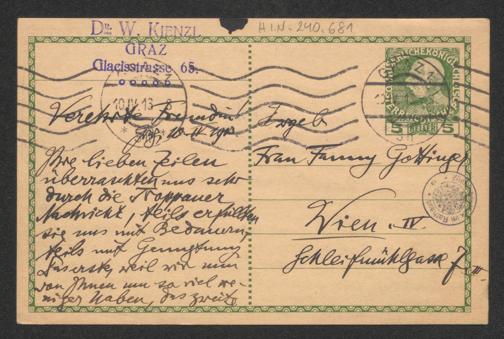 H.I.N.-240.681
Dr. W. KIENZL
GRAZ
Glacisstrasse 65.
10.IV.13
5 HELLER 5
Verehrte Freundin!
Graz, 10. IV 1913
Ihre lieben Zeilen
überraschten uns sehr
durch die Troppauer
Nachricht, teils erfüllten
sie uns mit Bedauern,
teils mit Genugtuung
weil wir nun
von Ihnen um so viel we-
niger haben, das zweite
Frau Fanny Gottinger
Wien, IV.
Schleifmühlgasse 7